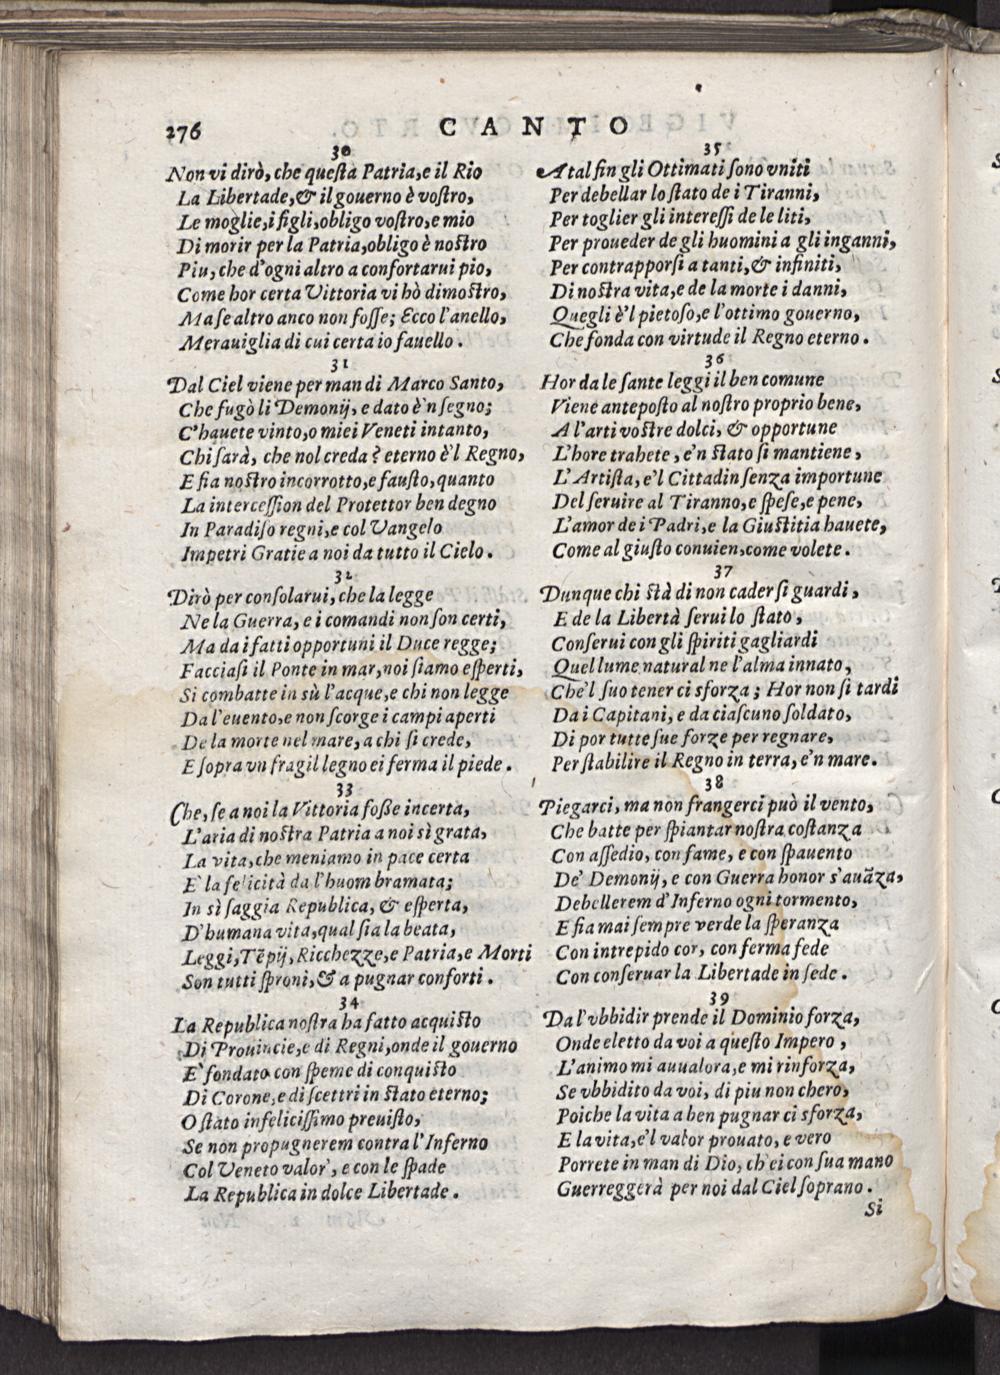 276
CANTO
30
Non vi dirò, che questa Patria, e il Rio
La Libertade, & il gouerno è vostro,
Le moglie, i figli, obligo vostro, e mio
Di morir per la Patria, obligo è nostro
Piu, che d'ogni altro a confortarui pio,
Come hor certa Vittoria vi hò dimostro,
Ma se altro anco non fosse; Ecco l'anello,
Merauiglia di cui certa io fauello.
31
Dal Ciel viene per man di Marco Santo,
Che fugò li Demonij, e dato è'n segno;
C'hauete vinto, o miei Veneti intanto,
Chi sarà, che nol creda? eterno è'l Regno,
E fia nostro incorrotto, e fausto, quanto
La intercession del Protettor ben degno
In Paradiso regni, e col Vangelo
Impetri Gratie a noi da tutto il Cielo.
32
Dirò per consolarui, che la legge
Ne la Guerra, e i comandi non son certi,
Ma da i fatti opportuni il Duce regge;
Facciasi il Ponte in mar, noi siamo esperti,
Si combatte in sù l'acque, e chi non legge
Da l'euento, e non scorge i campi aperti
De la morte nel mare, a chi si crede,
E sopra vn fragil legno ei ferma il piede.
33
Che, se a noi la Vittoria fosse incerta,
L'aria di nostra Patria a noi sì grata,
La vita, che meniamo in pace certa
E' la felicità da l'huom bramata;
In sì saggia Republica, & esperta,
D'humana vita, qual sia la beata,
Leggi, Tēpij, Ricchezze, e Patria, e Morti
Son tutti sproni, & a pugnar conforti.
34
La Republica nostra ha fatto acquisto
Di Prouincie, e di Regni, onde il gouerno
E' fondato con speme di conquisto
Di Corone, e di scettri in stato eterno;
O stato infelicissimo preuisto,
Se non propugnerem contra l'Inferno
Col Veneto valor, e con le spade
La Republica in dolce Libertade.
35
A tal fin gli Ottimati sono vniti
Per debellar lo stato de i Tiranni,
Per toglier gli interessi de le liti,
Per proueder de gli huomini a gli inganni,
Per contrapporsi a tanti, & infiniti,
Di nostra vita, e de la morte i danni,
Quegli è'l pietoso, e l'ottimo gouerno,
Che fonda con virtude il Regno eterno.
36
Hor da le sante leggi il ben comune
Viene anteposto al nostro proprio bene,
A l'arti vostre dolci, & opportune
L'hore trahete, e'n stato si mantiene,
L'Artista, e'l Cittadin senza importune
Del seruire al Tiranno, e spese, e pene,
L'amor de i Padri, e la Giustitia hauete,
Come al giusto conuien, come volete.
37
Dunque chi stà di non cader si guardi,
E de la Libertà serui lo stato,
Conserui con gli spiriti gagliardi
Quel lume natural ne l'alma innato,
Che'l suo tener ci sforza; Hor non si tardi
Da i Capitani, e da ciascuno soldato,
Di por tutte sue forze per regnare,
Per stabilire il Regno in terra, e'n mare.
38
Piegarci, ma non frangerci può il vento,
Che batte per spiantar nostra costanza
Con assedio, con fame, e con spauento
De' Demonij, e con Guerra honor s'auāza,
Debellerem d'Inferno ogni tormento,
E fia mai sempre verde la speranza
Con intrepido cor, con ferma fede
Con conseruar la Libertade in sede.
39
Da l'vbbidir prende il Dominio forza,
Onde eletto da voi a questo Impero,
L'animo mi auualora, e mi rinforza,
Se vbbidito da voi, di piu non chero,
Poiche la vita a ben pugnar ci sforza,
E la vita, e'l valor prouato, e vero
Porrete in man di Dio, ch'ei con sua mano
Guerreggerà per noi dal Ciel soprano.
Si